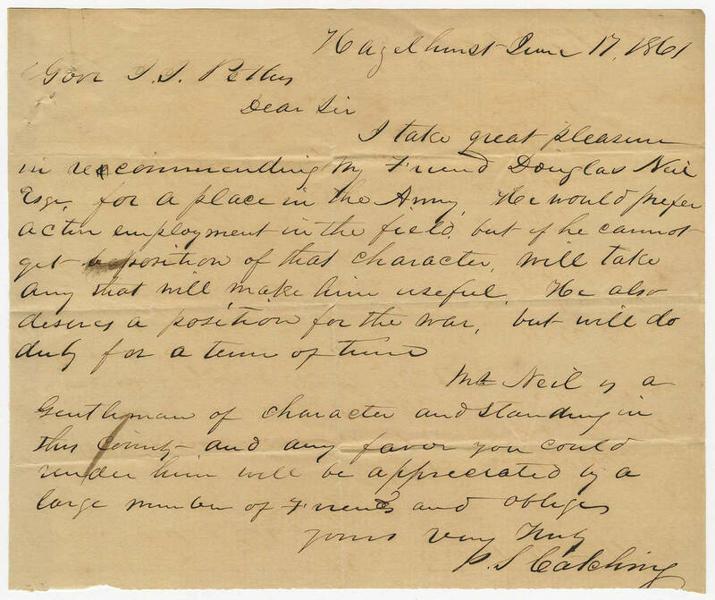 Hazelhurst June 17, 1861
Govr J. J. Pettus
Dear Sir
I take great pleasure
in reccommending my Friend Douglas Neil
Esqr. for a place in the Army. He would prefer
active employment in the field, but if he cannot
get a position of that character, will take
any that will make him useful. He also
desires a position for the war, but will do
duty for a term of time
Mr Neil is a
Gentleman of character and standing in
this County and any favor you could
render him will be appreciated by a
large number of Friends and oblige
yours very truly
P. S. Catching